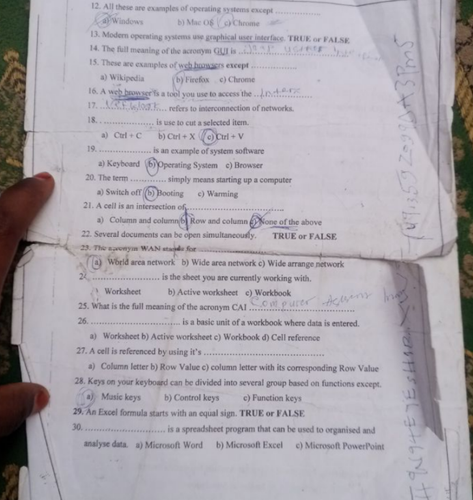 12. All these are examples of operating systems except ....................
a) Windows b) Mac OS c) Chrome
13. Modern operating systems use graphical user interface. TRUE or FALSE
14. The full meaning of the acronym GUI is
15. These are examples of web browsers except ..................
a) Wikipedia b) Firefox c) Chrome
16. A web browser is a tool you use to access the ...
17. Network refers to interconnection of networks.
18. .................... is use to cut a selected item.
a) Ctrl + C b) Ctrl + X c) Ctrl + V
19. .................... is an example of system software
a) Keyboard b) Operating System c) Browser
20. The term ............ simply means starting up a computer
a) Switch off b) Booting c) Warming
21. A cell is an intersection of ....................
a) Column and column b) Row and column c) None of the above
22. Several documents can be open simultaneously. TRUE or FALSE
23. The acronym WAN stands for
a) World area network b) Wide area network c) Wide arrange network
24. .................... is the sheet you are currently working with.
Worksheet b) Active worksheet c) Workbook
25. What is the full meaning of the acronym CAI Computer
26. .................... is a basic unit of a workbook where data is entered.
a) Worksheet b) Active worksheet c) Workbook d) Cell reference
27. A cell is referenced by using it's ....................
a) Column letter b) Row Value c) column letter with its corresponding Row Value
28. Keys on your keyboard can be divided into several group based on functions except.
a) Music keys b) Control keys c) Function keys
29. An Excel formula starts with an equal sign. TRUE or FALSE
30. .................... is a spreadsheet program that can be used to organised and
analyse data. a) Microsoft Word b) Microsoft Excel c) Microsoft PowerPoint